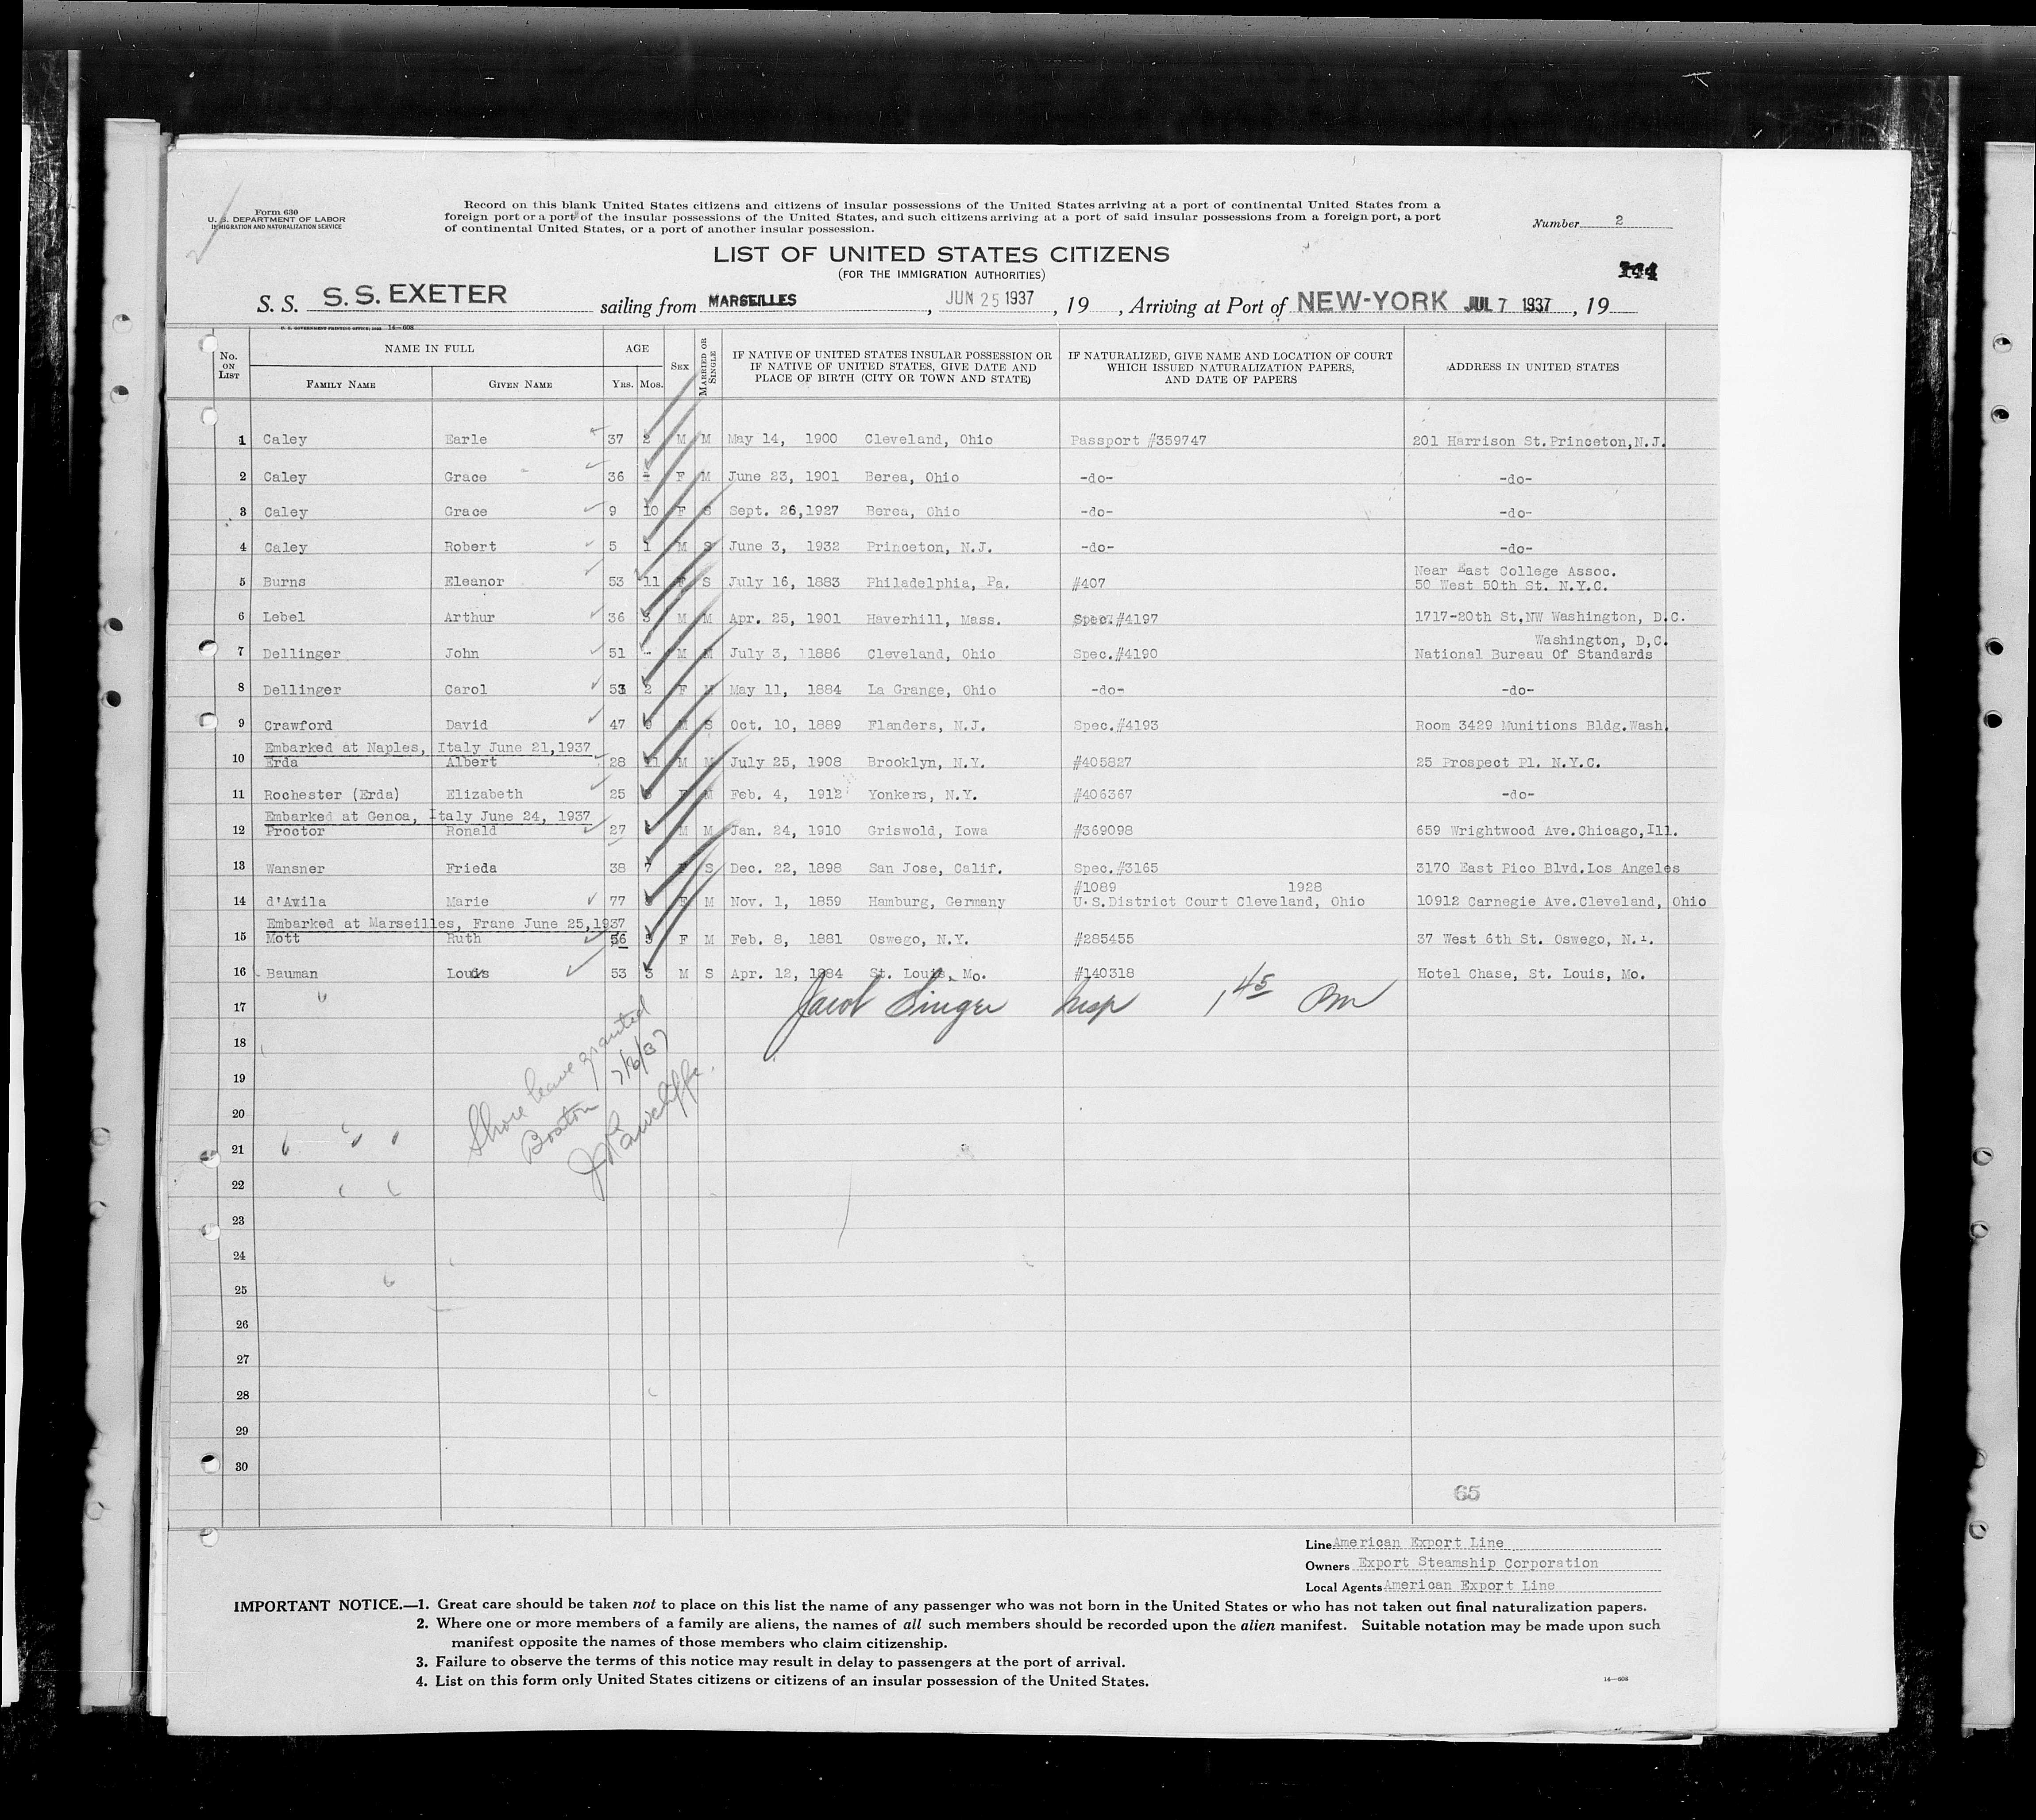 Form 630
U. S. DEPARTMENT OF LABOR
IMMIGRATION AND NATURALIZATION SERVICE
Record on this blank United States citizens and citizens of insular possessions of the United States arriving at a port of continental United States from a
foreign port or a port of the insular possessions of the United States, and such citizens arriving at a port of said insular possessions from a foreign port, a port
of continental United States, or a port of another insular possession.
Number 2
LIST OF UNITED STATES CITIZENS
(FOR THE IMMIGRATION AUTHORITIES)
144
S. S. S.S. EXETER sailing from MARSEILLES, JUN 25 1937, 19 , Arriving at Port of NEW-YORK JUL 7 1937, 19
U. S. GOVERNMENT PRINTING OFFICE: 14—608
No. ON LIST NAME IN FULL AGE SEX MARRIED OR SINGLE IF NATIVE OF UNITED STATES INSULAR POSSESSION OR IF NATIVE OF UNITED STATES, GIVE DATE AND PLACE OF BIRTH (CITY OR TOWN AND STATE) IF NATURALIZED, GIVE NAME AND LOCATION OF COURT WHICH ISSUED NATURALIZATION PAPERS, AND DATE OF PAPERS ADDRESS IN UNITED STATES
FAMILY NAME GIVEN NAME YRS. MOS.
1 Caley Earle 37 2 M M May 14, 1900 Cleveland, Ohio Passport #359747 201 Harrison St.Princeton,N.J.
2 Caley Grace 36 F M June 23, 1901 Berea, Ohio -do- -do-
3 Caley Grace 9 10 F S Sept. 26,1927 Berea, Ohio -do- -do-
4 Caley Robert 5 1 M S June 3, 1932 Princeton, N.J. -do- -do-
Near East College Assoc.
5 Burns Eleanor 53 11 F S July 16, 1883 Philadelphia, Pa. #407 50 West 50th St. N.Y.C.
6 Lebel Arthur 36 3 M M Apr. 25, 1901 Haverhill, Mass. Spec.#4197 1717-20th St,NW Washington, D.C.
Washington, D,C.
7 Dellinger John 51 - M M July 3, 1886 Cleveland, Ohio Spec.#4190 National Bureau Of Standards
8 Dellinger Carol 53 2 F M May 11, 1884 La Grange, Ohio -do- -do-
9 Crawford David 47 M S Oct. 10, 1889 Flanders, N.J. Spec.#4193 Room 3429 Munitions Bldg.Wash.
Embarked at Naples, Italy June 21,1937
10 Erda Albert 28 11 M M July 25, 1908 Brooklyn, N.Y. #405827 25 Prospect Pl. N.Y.C.
11 Rochester (Erda) Elizabeth 25 F M Feb. 4, 1912 Yonkers, N.Y. #406367 -do-
Embarked at Genoa, Italy June 24, 1937
12 Proctor Ronald 27 M M Jan. 24, 1910 Griswold, Iowa #369098 659 Wrightwood Ave.Chicago,Ill.
13 Wansner Frieda 38 7 F S Dec. 22, 1898 San Jose, Calif. Spec.#3165 3170 East Pico Blvd.Los Angeles
#1089 1928
14 d'Avila Marie 77 F M Nov. 1, 1859 Hamburg, Germany U.S.District Court Cleveland, Ohio 10912 Carnegie Ave.Cleveland, Ohio
Embarked at Marseilles, Frane June 25,1937
15 Mott Ruth 56 5 F M Feb. 8, 1881 Oswego, N.Y. #285455 37 West 6th St. Oswego, N.Y.
16 Bauman Louis 53 3 M S Apr. 12, 1884 St. Louis, Mo. #140318 Hotel Chase, St. Louis, Mo.
17 Jacob Singer Insp 1 45 Pm
18
19
20
21
22
23
24
25
26
27
28
29
30
Shore leave granted
Boston 7/6/37
65
Line American Export Line
Owners Export Steamship Corporation
Local Agents American Export Line
IMPORTANT NOTICE.—1. Great care should be taken not to place on this list the name of any passenger who was not born in the United States or who has not taken out final naturalization papers.
2. Where one or more members of a family are aliens, the names of all such members should be recorded upon the alien manifest. Suitable notation may be made upon such
manifest opposite the names of those members who claim citizenship.
3. Failure to observe the terms of this notice may result in delay to passengers at the port of arrival.
4. List on this form only United States citizens or citizens of an insular possession of the United States.
14—608